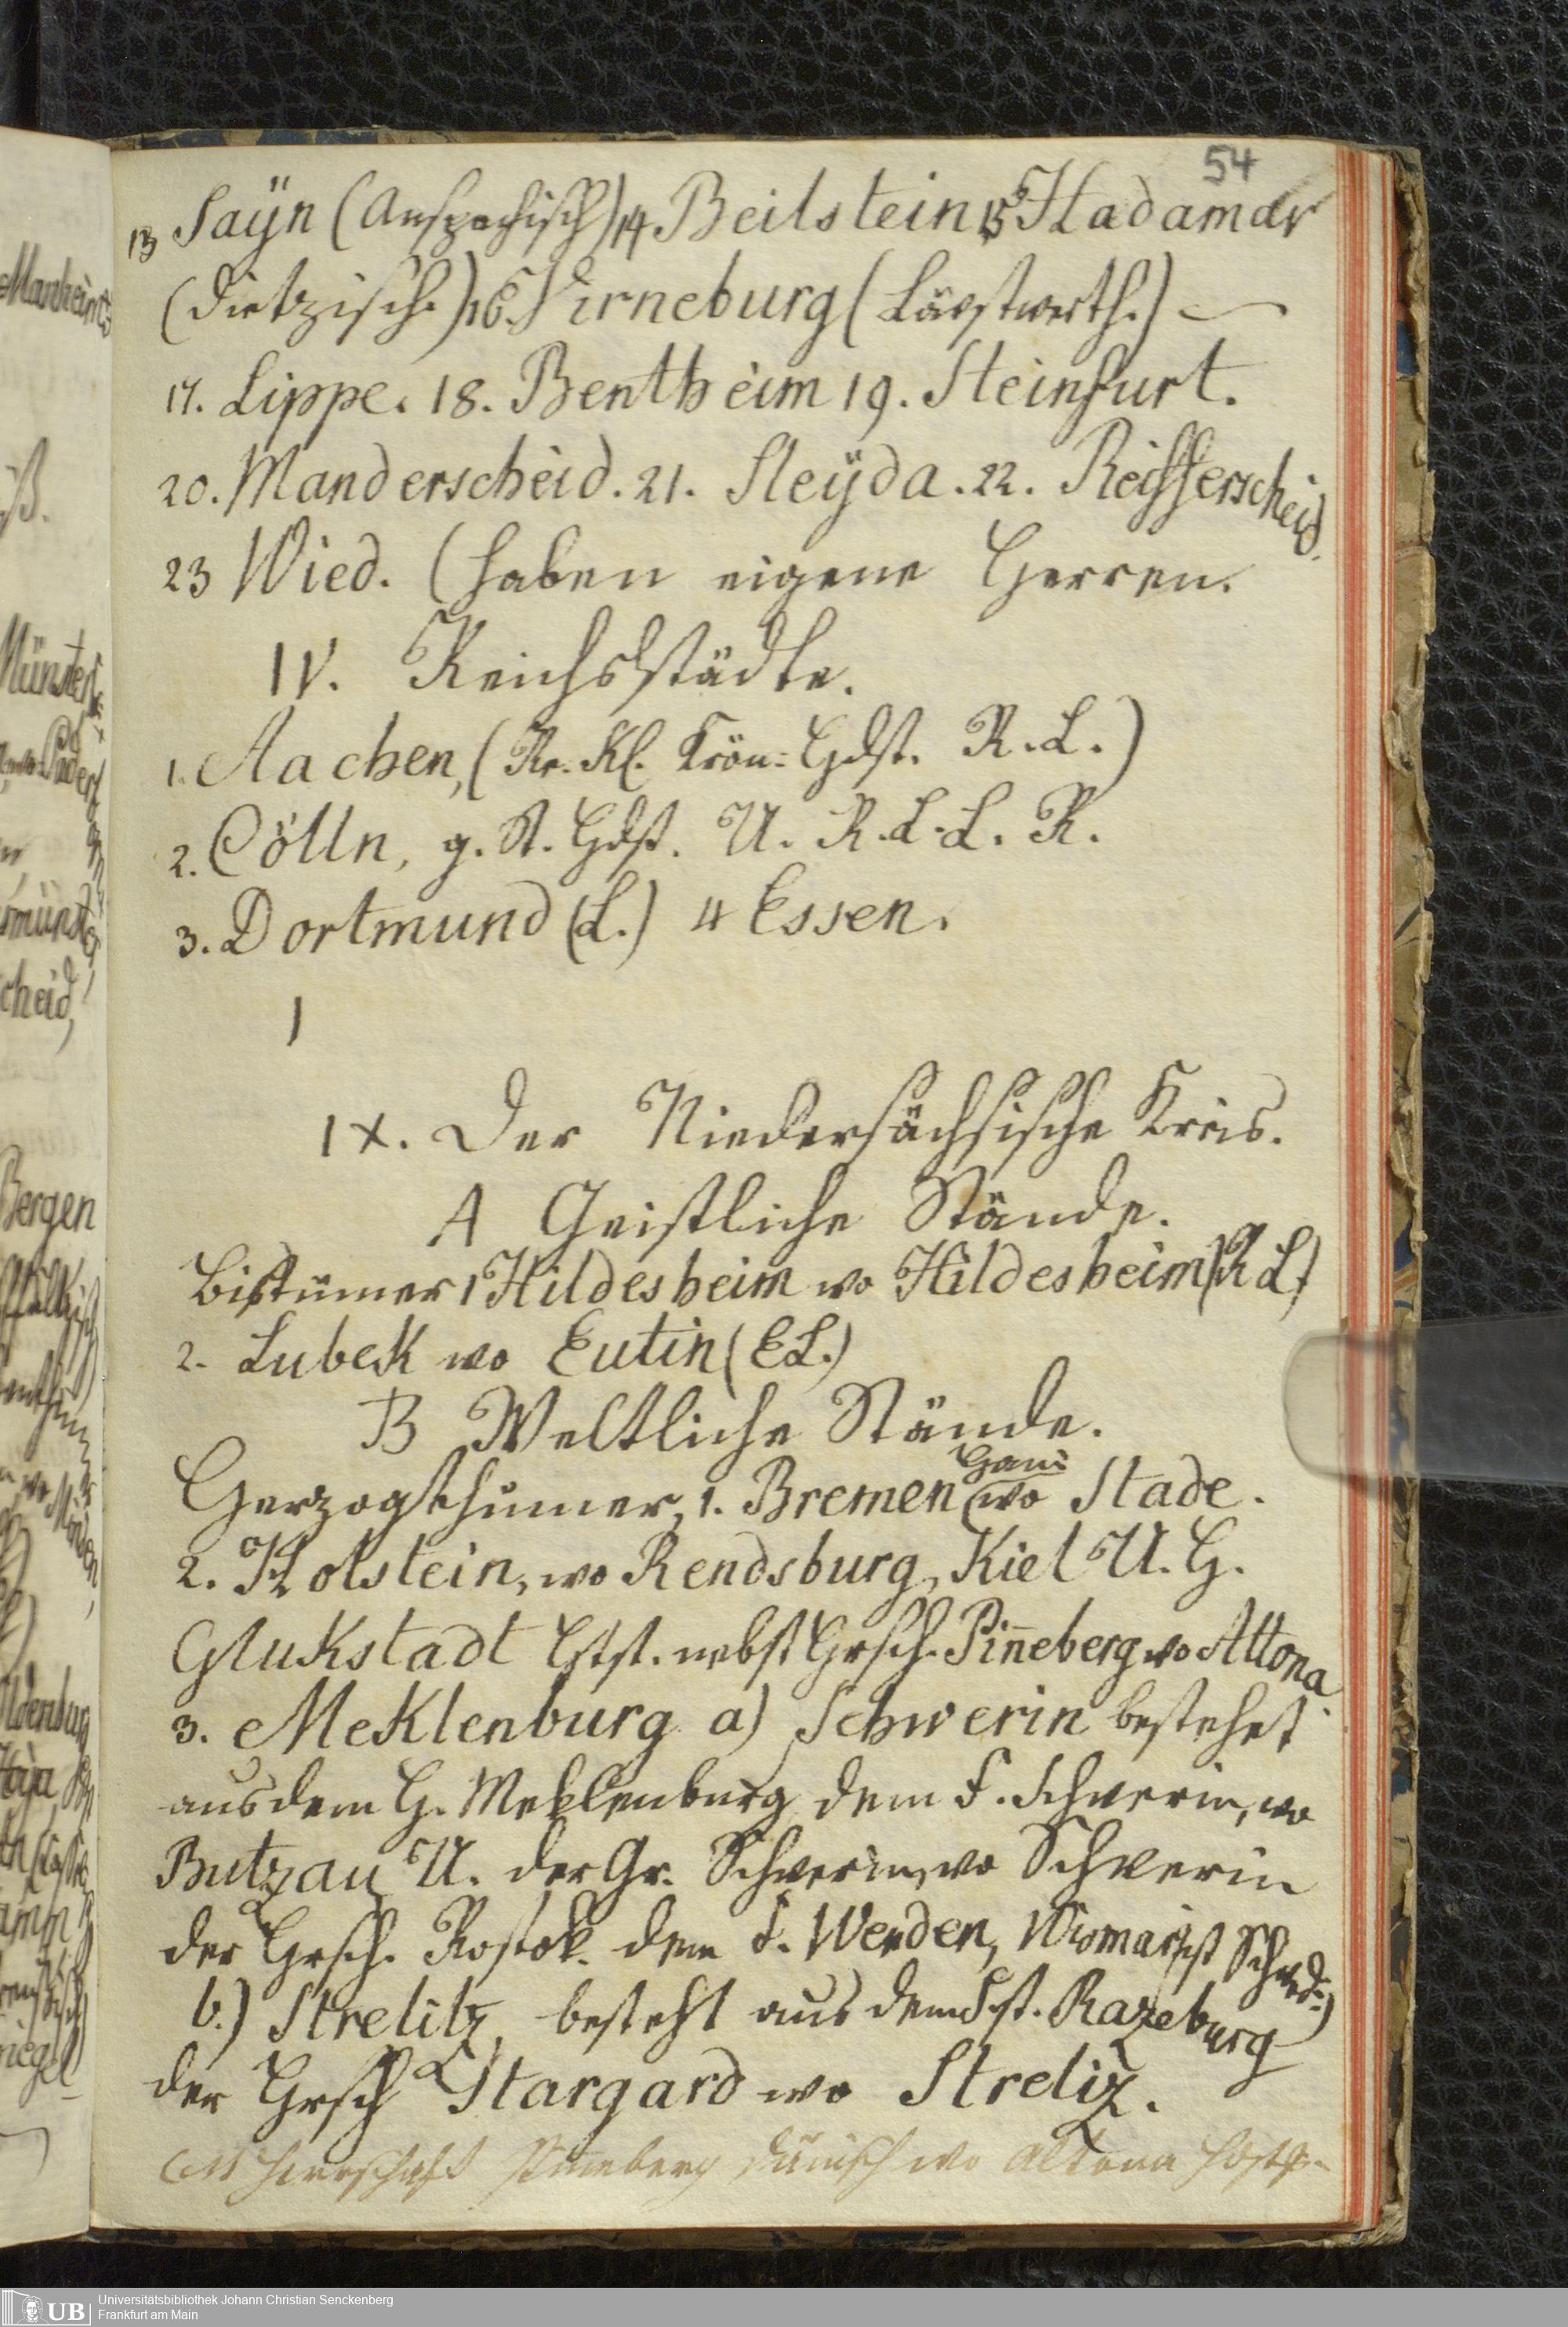 54
13 Saÿn (Anspachisch) 14 Beilstein 15 Hadamar
(Dietzisch.) 16. Virneburg (Löwstwerth.) —
17. Lippe. 18. Bentheim 19. Steinfurt.
20. Manderscheid. 21. Sleÿda. 22. Reifferscheid.
23 Wied. (haben eigene Herren.
IV. Reichsstädte.
1. Aachen, (Kr. R. L.)
2. Cölln, g. St. Hdst. U. R. L. L. R.
3. Dortmund (L.) 4 Essen.
IX. Der Niedersächsische Kreis.
A Geistliche Stände.
Bistümer 1 Hildesheim wo Hildesheim (R L)
2. Lubek wo Eutin (E L.)
B Weltliche Stände.
Herzogthümer, 1. Bremen (Han:) wo Stade.
2. Holstein, wo Rendsburg, Kiel U. H.
Glukstadt Hptst. nebst Hrsch. Pin̄eberg wo Altona
3. Meklenburg a) Schwerin bestehet
aus dem H. Meklenburg dem F. Schwerin, wo
Butzau U. der Gr. Schwerin, wo Schwerin
der Hrsch. Rostok. dem F. Wenden, Wismar ist Schwed:)
b.) Strelitz, besteht aus dem Fst. Razeburg
der Hrsch Stargard wo Streliz.
Herrschaft Pinneberg Dänisch wo Altona
Universitätsbibliothek Johann Christian Senckenberg
Frankfurt am Main
UB